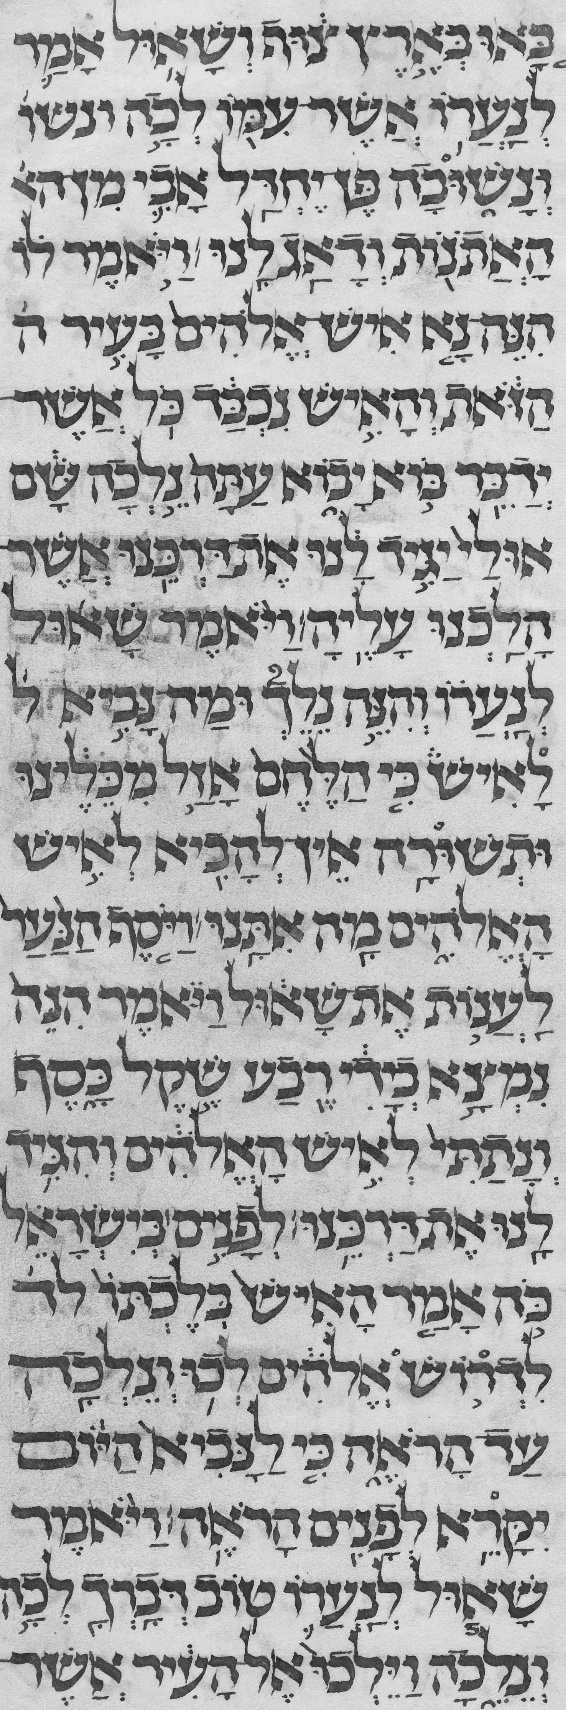 בָּאוּ בְּאֶרֶץ צוּף וְשָׁאוּל אָמַר
לְנַעֲרוֹ אֲשֶׁר עִמּוֹ לְכָה ונשו
וְנָשׁוּבָה פֶּן יֶחְדַּל אָבִי מִן הא
הָאֲתֹנוֹת וְדָאַג לָנוּ וַיֹּאמֶר לוֹ
הִנֵּה נָא אִישׁ אֱלֹהִים בָּעִיר ה
הַזֹּאת וְהָאִישׁ נִכְבָּד כֹּל אֲשֶׁר
יְדַבֵּר בּוֹא יָבוֹא עַתָּה נֵלְכָה שָּׁם
אוּלַי יַגִּיד לָנוּ אֶת דַּרְכֵּנוּ אֲשֶׁר
הָלַכְנוּ עָלֶיהָ וַיֹּאמֶר שָׁאוּל
לְנַעֲרוֹ וְהִנֵּה נֵלֵךְ וּמַה נָּבִיא ל
לָאִישׁ כִּי הַלֶּחֶם אָזַל מִכֵּלֵינוּ
וּתְשׁוּרָה אֵין לְהָבִיא לְאִישׁ
הָאֱלֹהִים מָה אִתָּנוּ וַיֹּסֶף הַנַּעַר
לַעֲנוֹת אֶת שָׁאוּל וַיֹּאמֶר הִנֵּה
נִמְצָא בְיָדִי רֶבַע שֶׁקֶל כָּסֶף
וְנָתַתִּי לְאִישׁ הָאֱלֹהִים וְהִגִּיד
לָנוּ אֶת דַּרְכֵּנוּ לְפָנִים בְּיִשְׂרָאֵל
כֹּה אָמַר הָאִישׁ בְּלֶכְתּוֹ לד
לִדְרוֹשׁ אֱלֹהִים לְכוּ וְנֵלְכָה
עַד הָרֹאֶה כִּי לַנָּבִיא הַיּוֹם
יִקָּרֵא לְפָנִים הָרֹאֶה וַיֹּאמֶר
שָׁאוּל לְנַעֲרוֹ טוֹב דְּבָרְךָ לְכָה
וְנֵלֵכָה וַיֵּלְכוּ אֶל הָעִיר אֲשֶׁר